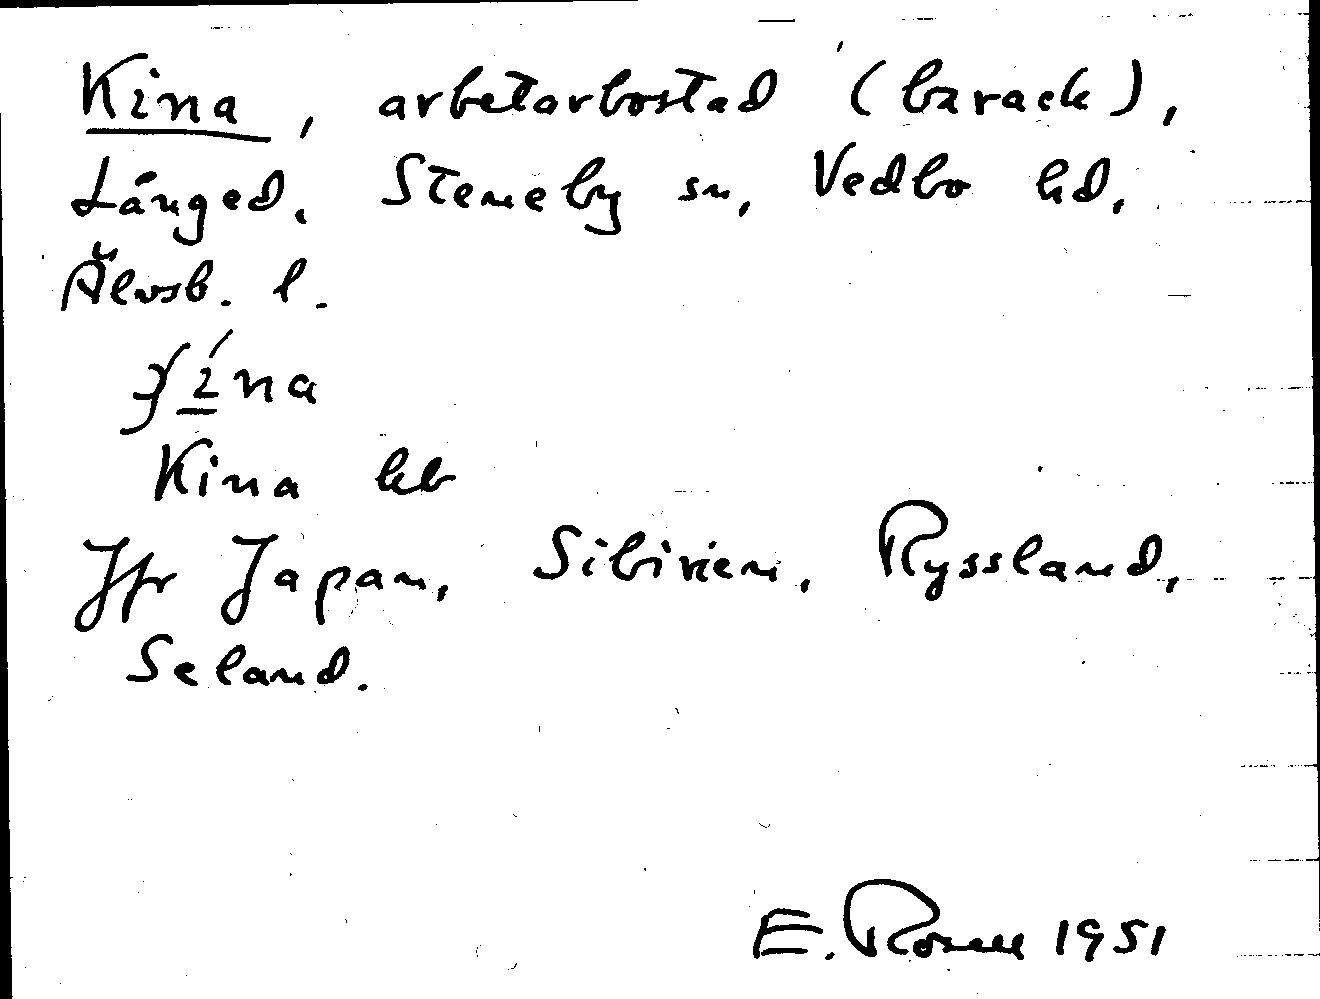 Kina, arbetarbostad (barack),
Långed, Steneby sn, Vedbo hd,
Älvsb. l.
Kina hb
Jfr Japan, Sibirien, Ryssland,
Seland.
E. Rosell 1951